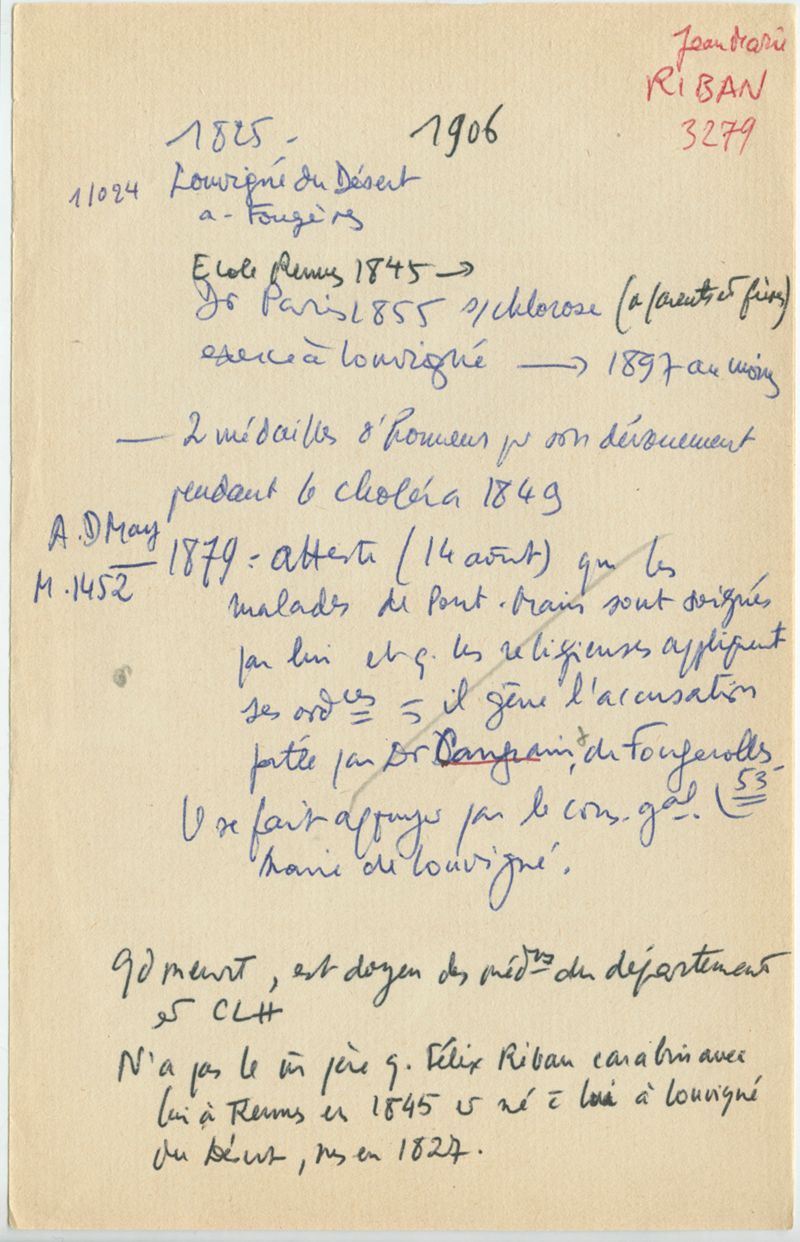 Jean Marie
RIBAN
3279
1825 - 1906
11024 Louvigné du Désert
a - Fougères
Ecole Rennes 1845 →
Dr Paris 1855 s/chlorose (a parents et frères)
exerce à Louvigné → 1897 au moins
— 2 médailles d'honneur pr son dévouement
pendant le choléra 1849
A.D May
M.1452
— 1879 = atteste (14 août) que les
malades de Pont-Main sont soignés
par lui et q. les religieuses appliquent
ses ordces = il gêne l'accusation
portée par Dr de Fougerolles
53
Il se fait appuyer par le cons. gal.
Maire de Louvigné.
Qd meurt, est doyen des médns du département
et CLH
N'a pas le m̄ père q. Félix Riban carabin avec
lui à Rennes en 1845 et né c̄ lui à Louvigné
du Désert, ms en 1827.